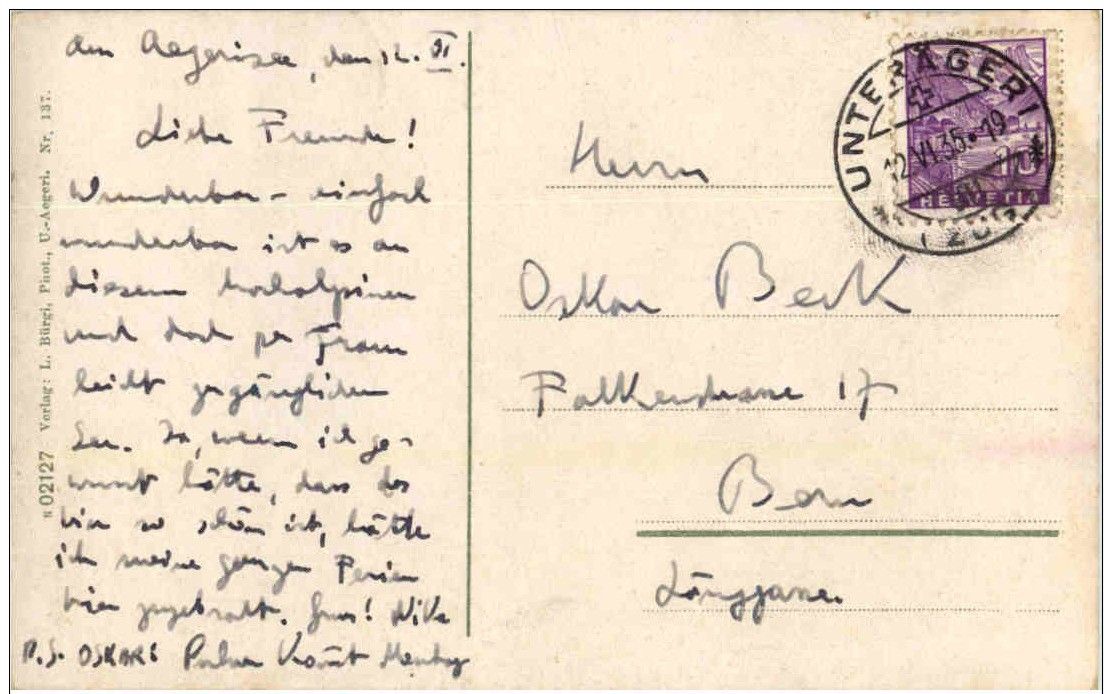 am Aegerisee, den 12. VI.
Liebe Freunde!
Wunderbar - einfach
wunderbar ist es an
diesem hochalpinen
und doch per Fram
leicht zugänglichen
See. Ja, wenn ich ge-
wusst hätte, dass das
hier so schön ist, hätte
ich meine ganzen Ferien
hier zugebracht. Grus!
P.S. OSKAR!
№ 02127 Verlag: L. Bürgi, Phot., U.-Aegeri. Nr. 137.
UNTERÄGERI
12.VI.35.-19
(ZUG)
10
HELVETIA
Herrn
Oskar Beck
Falkenstrasse 17
Bern
Länggasse.